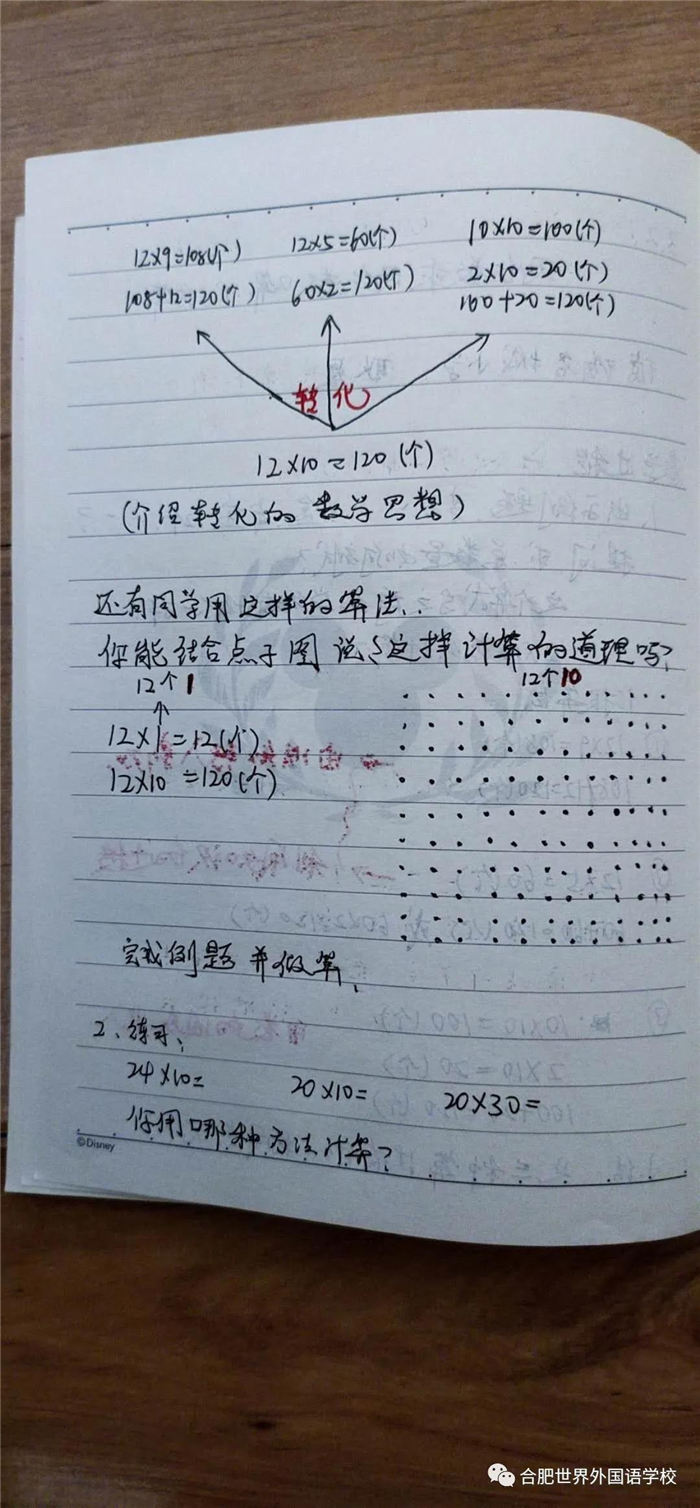 12×9=108(个)
108+12=120(个)
12×5=60(个)
60×2=120(个)
10×10=100(个)
2×10=20(个)
100+20=120(个)
转化
12×10=120(个)
(介绍转化的数学思想)
还有同学用这样的算法.
你能结合点子图说说这样计算的道理吗?
12个1
12个10
12×1=12(个)
12×10=120(个)
完成例题并做答.
2、练习:
24×10=
20×10=
20×30=
你用哪种方法计算?
©Disney
合肥世界外国语学校